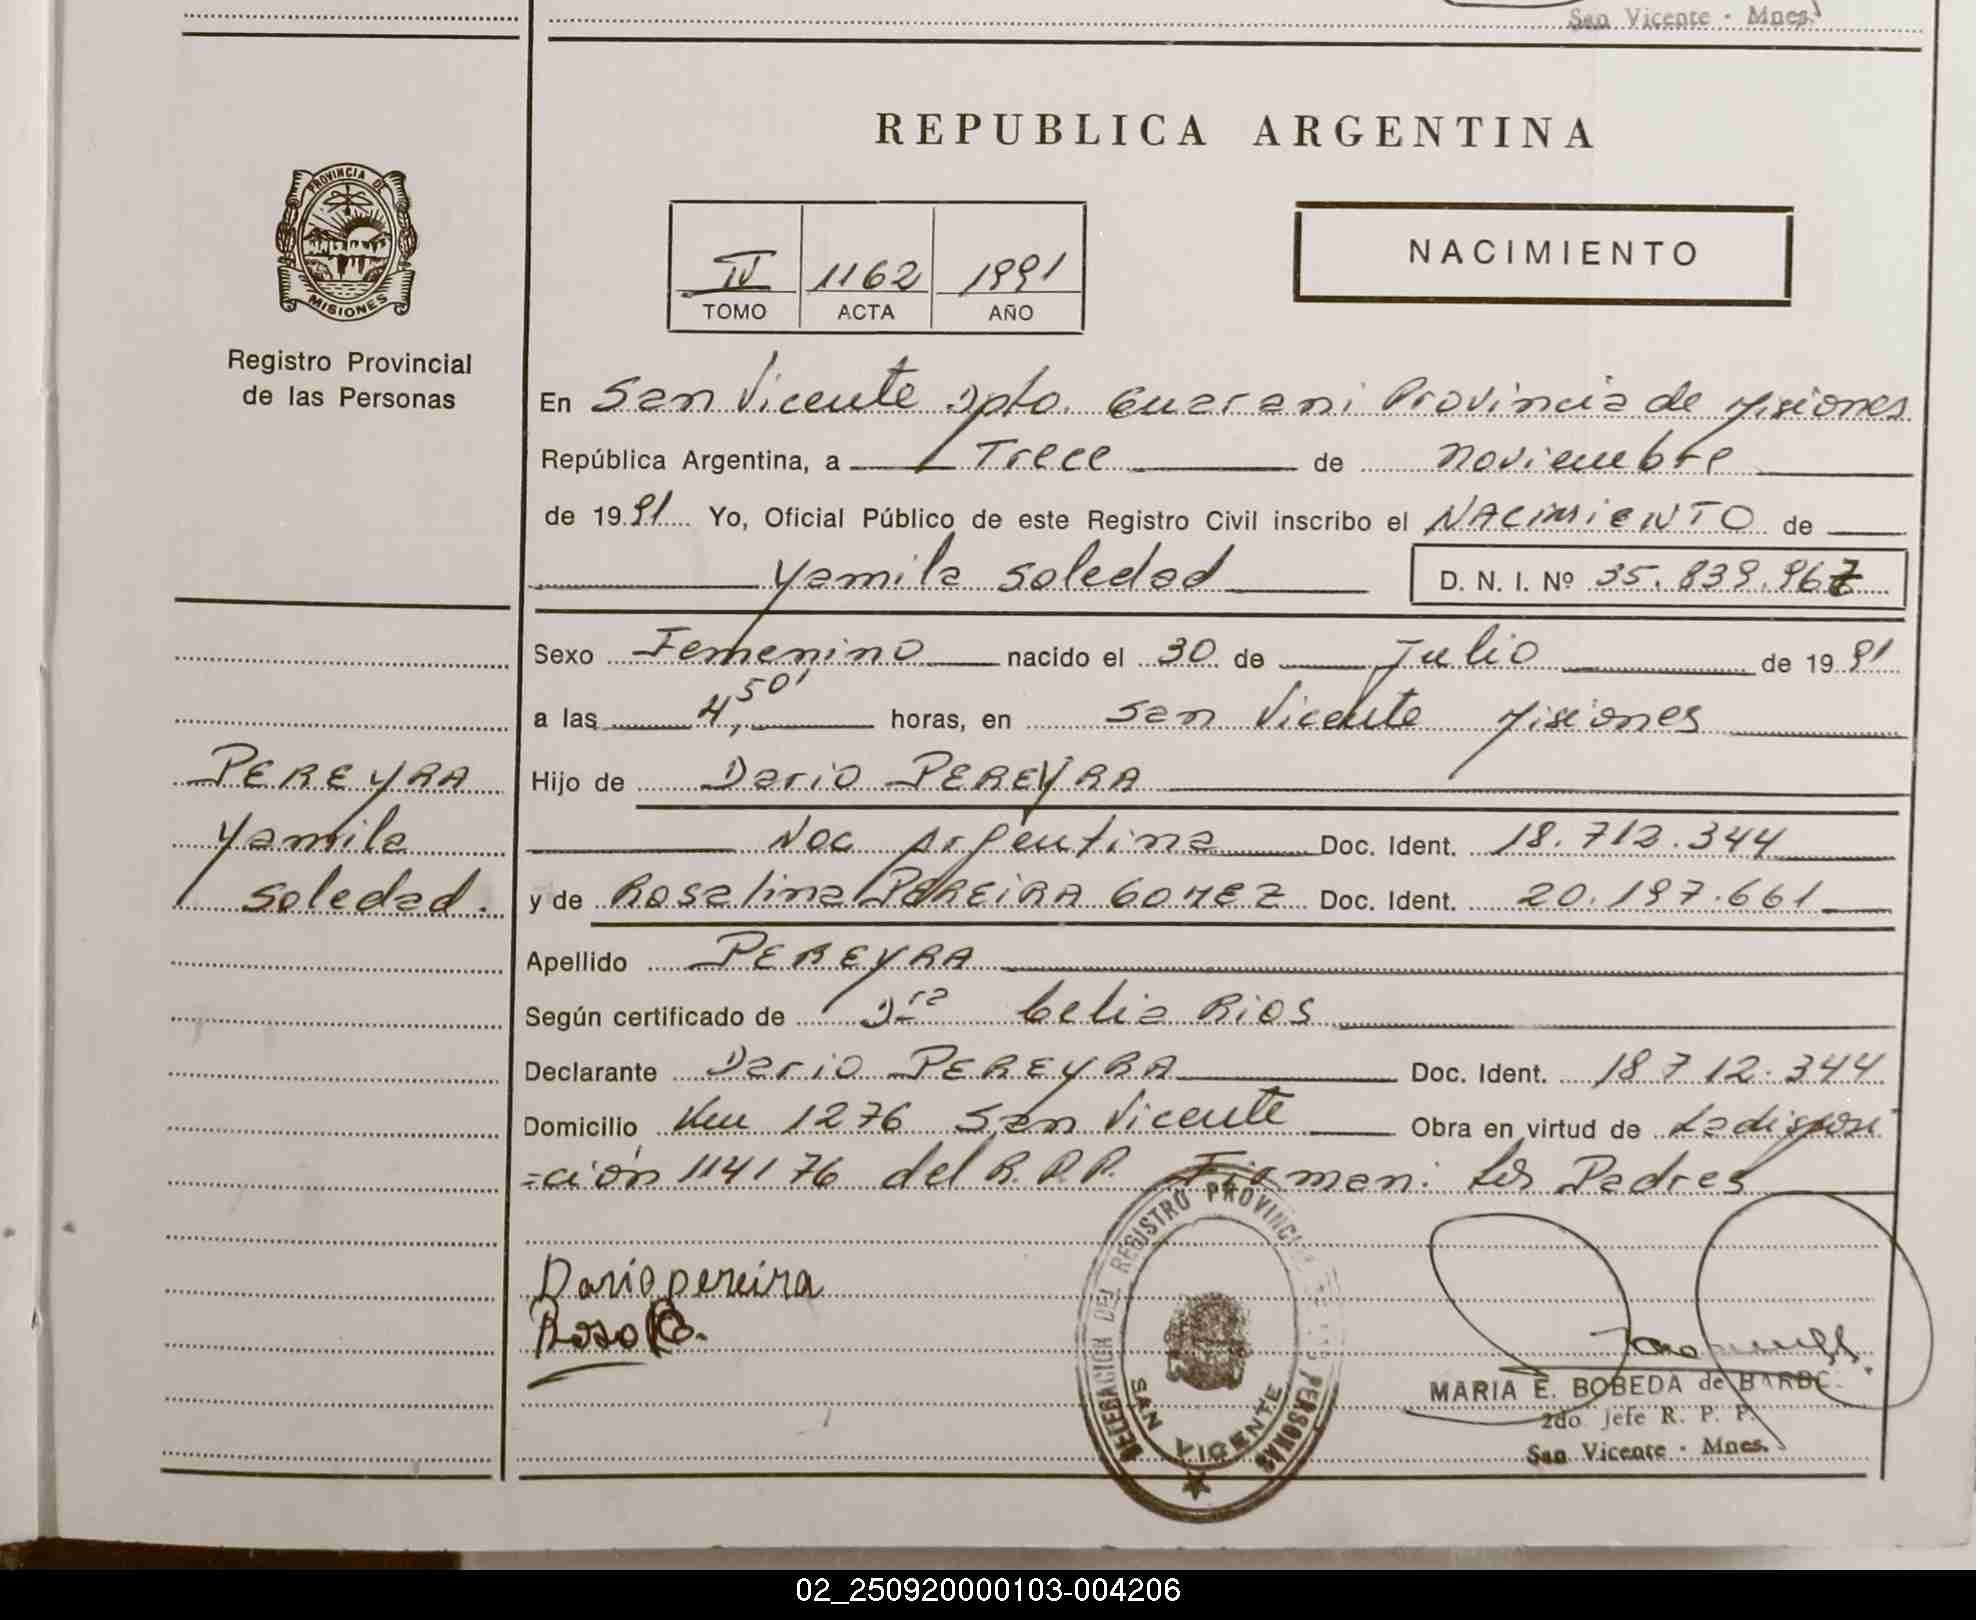 San Vicente - Mnes.
REPUBLICA ARGENTINA
PROVINCIA DE
MISIONES
Registro Provincial
de las Personas
IV 1162 1991
TOMO ACTA AÑO
NACIMIENTO
En San Vicente Dpto. Guarani Provincia de Misiones
República Argentina, a Trece de noviembre
de 1991 Yo, Oficial Público de este Registro Civil inscribo el NACIMIENTO de
Yamila Soledad D. N. I. Nº 35.839.967
Sexo Femenino nacido el 30 de Julio de 1991
a las 4,50' horas, en San Vicente Misiones
PEREYRA
Yamila
Soledad.
Hijo de Dario PEREYRA
Nac Argentina Doc. Ident. 18.712.344
y de Rosalina PEREIRA GOMEZ Doc. Ident. 20.197.661
Apellido PEREYRA
Según certificado de Dra Celia Rios
Declarante Dario PEREYRA Doc. Ident. 18 712.344
Domicilio Km 1276 San Vicente Obra en virtud de La disposi
=ción 114/76 del R.P.P. Firman: Los Padres
Dario pereira
Rosa
DELEGACION DEL REGISTRO PROVINCIAL DE LAS PERSONAS
SAN VICENTE
MARIA E. BOBEDA de
2do Jefe R. P. P.
San Vicente - Mnes.
02_250920000103-004206